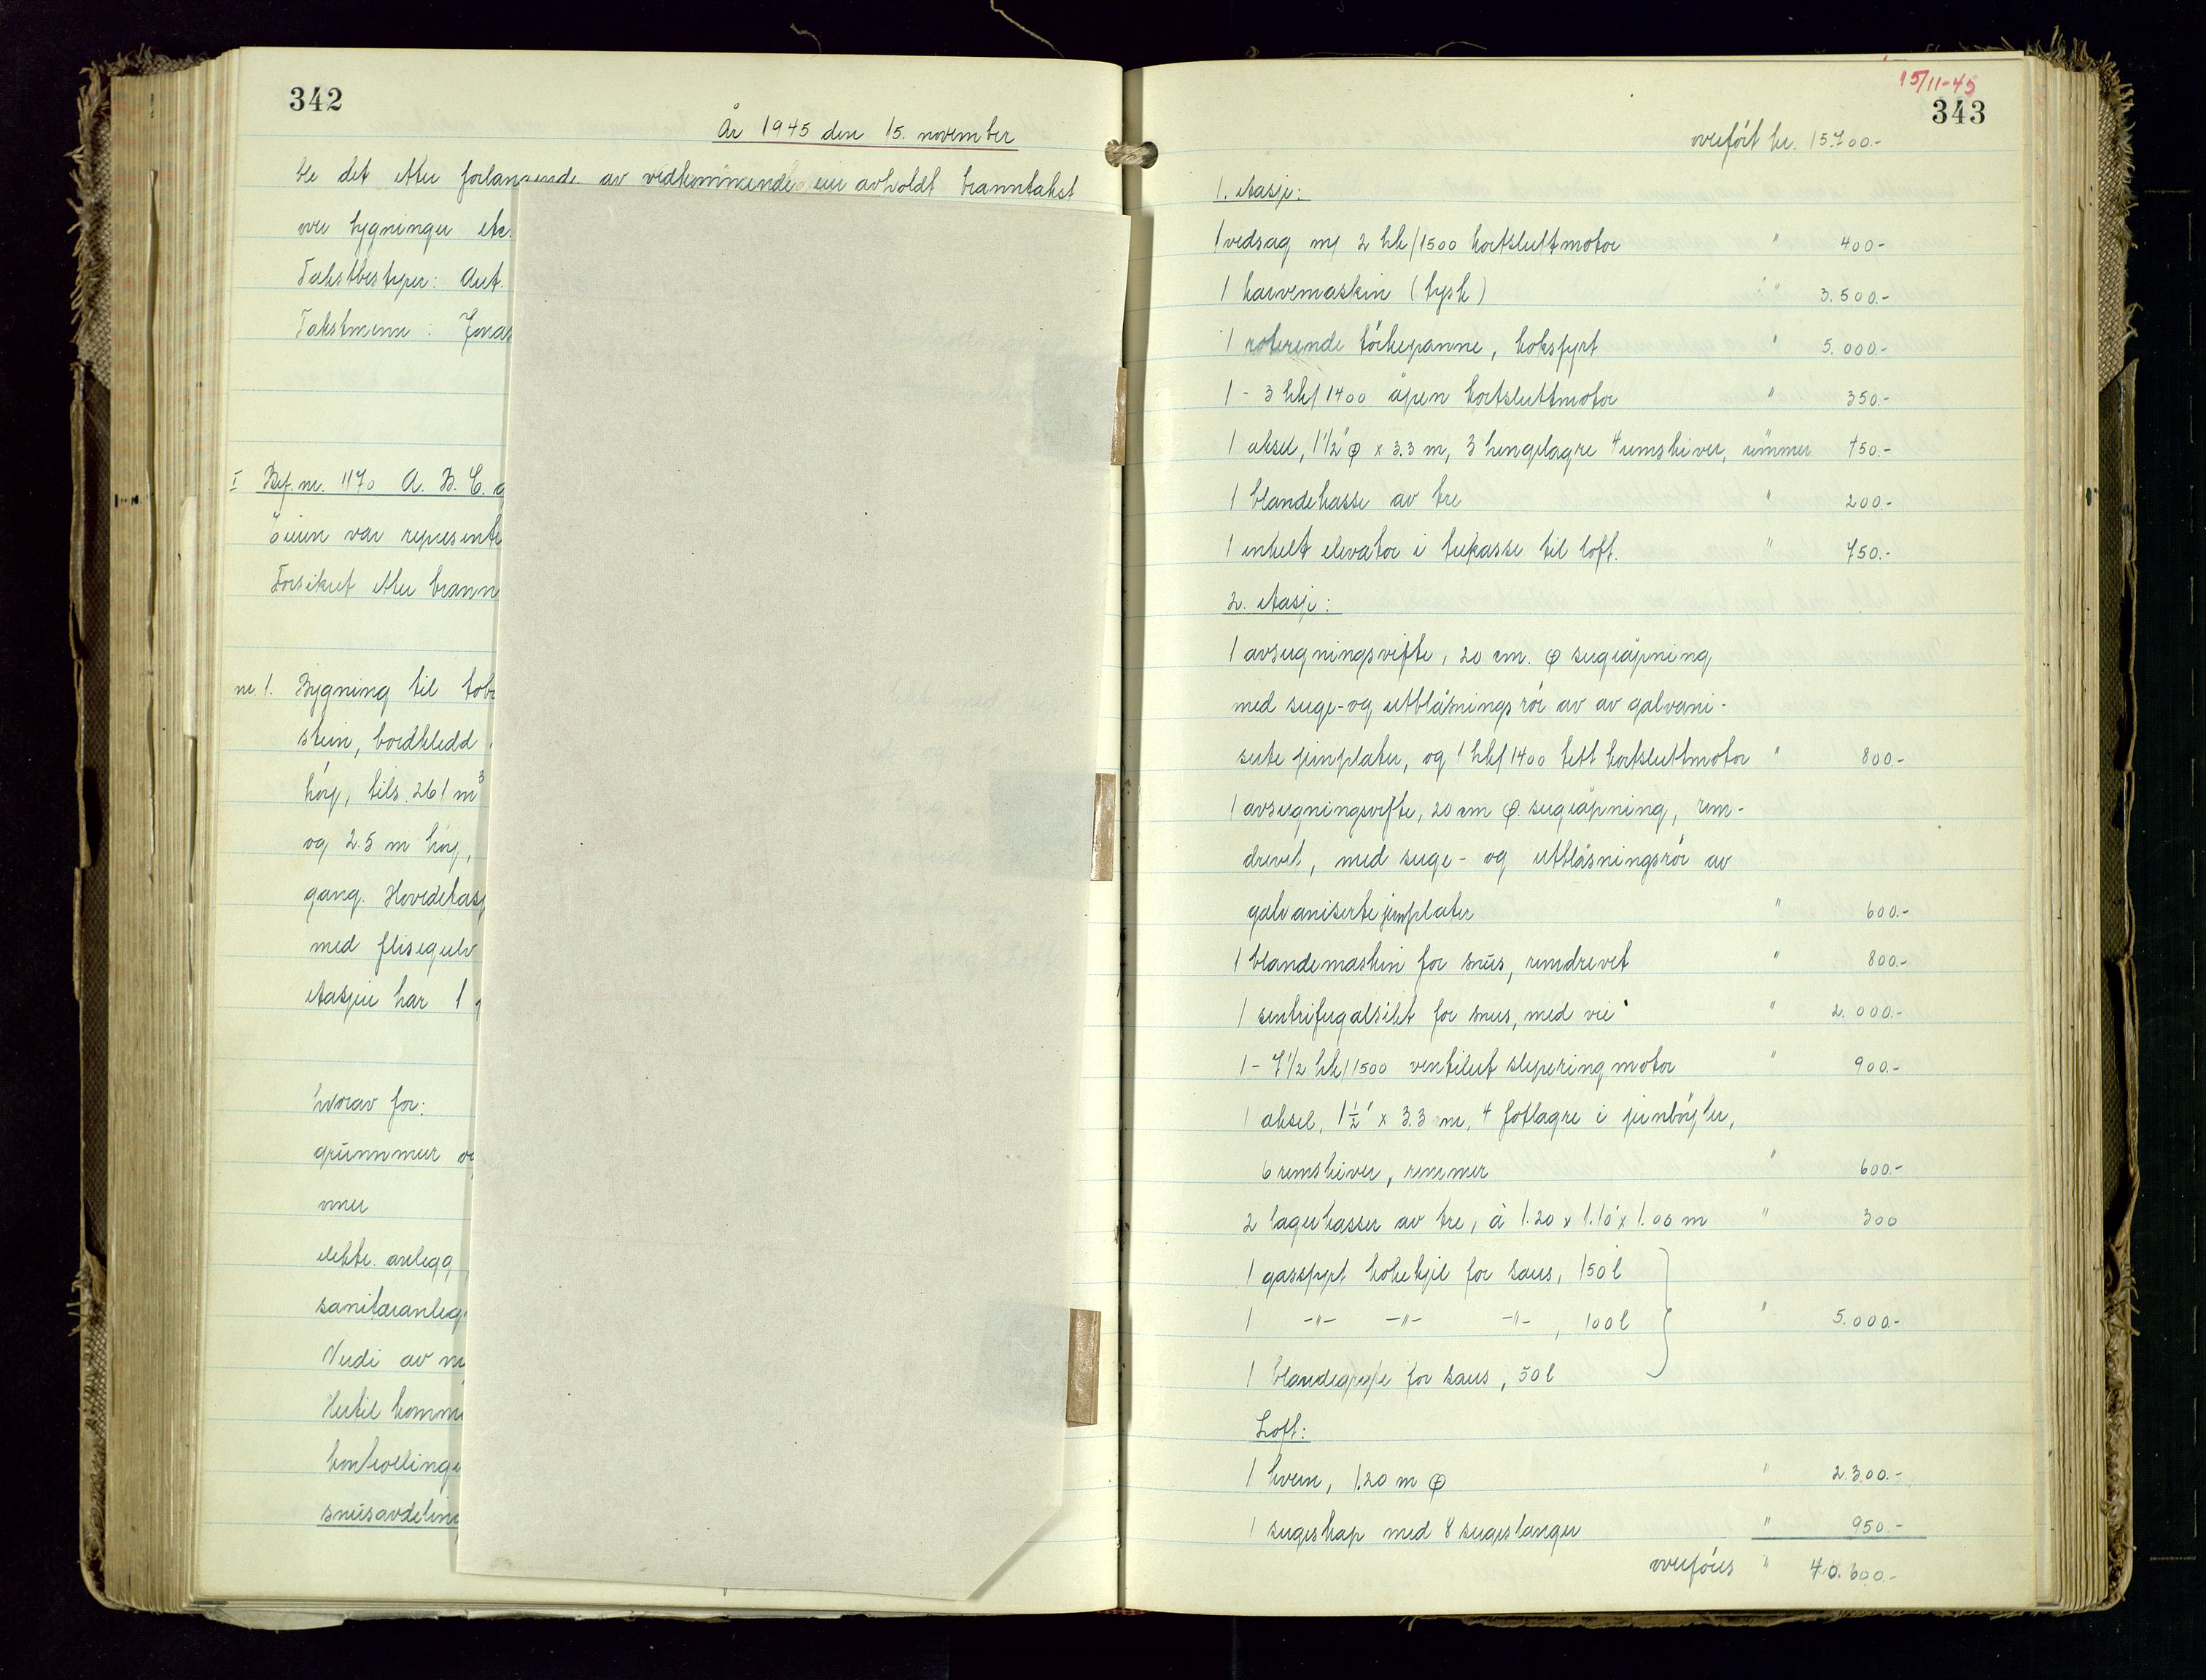 342
År 1945 den 15. november
ble det etter forlangende av vedkommende eier avholdt branntakst
over bygninger etc.
Takstbestyrer: Aut.
Takstmenn: Jonas
I Bef. nr. 1170 A. B. C.
Eieren var represente
Forsikret etter brann
nr. 1. Bygning til tob
stein, bordkledd
høy, tils. 261 m³
og 2.5 m høy,
gang. Hovedetasj
med flisegulv
etasjen har 1
hvorav for:
grunnmur og
ovner
elektr. anlegg
sanitæranlegg
Verdi av
Hertil komme
kontrollinge
snusavdeling
15/11-45
343
overført kr. 15.700.-
1. etasje:
1 vedsag m/ 2 hk/1500 kortsluttmotor " 400.-
1 karvemaskin (tysk) " 3.500.-
1 roterende tørkepanne, koksfyrt " 5.000.-
1 - 3 hk/1400 åpen kortsluttmotor " 350.-
1 aksel, 1 1/2" φ x 3.3 m, 3 hengelagre 4 remskiver, remmer 450.-
1 blandekasse av tre " 200.-
1 enkelt elevator i trekasse til loft. " 750.-
2. etasje:
1 avsugningsvifte, 20 cm. φ sugeåpning
med suge- og utblåsningsrør av av galvani-
serte jernplater, og 1 hk/1400 tett kortsluttmotor " 800.-
1 avsugningsvifte, 20 cm φ sugeåpning, rem-
drevet, med suge- og utblåsningsrør av
galvaniserte jernplater " 600.-
1 blandemaskin for snus, remdrevet " 800.-
1 sentrifugalsikt for snus, med " 2.000.-
1 - 7 1/2 hk/1500 ventilert sleperingmotor " 900.-
1 aksel, 1 1/2" x 3.3 m, 4 fotlagre i jernbøyler,
6 remskiver, remmer " 600.-
2 lagerkasser av tre, à 1.20 x 1.10 x 1.00 m " 300
1 gassfyrt kokekjel for saus, 150 l
1 -"- -"- -"-, 100 l " 5.000.-
1 blandegryte for saus, 50 l
Loft:
1 kvern, 1.20 m φ " 2.300.-
1 sugeskap med 8 sugeslanger " 950.-
overføres " 40.600.-